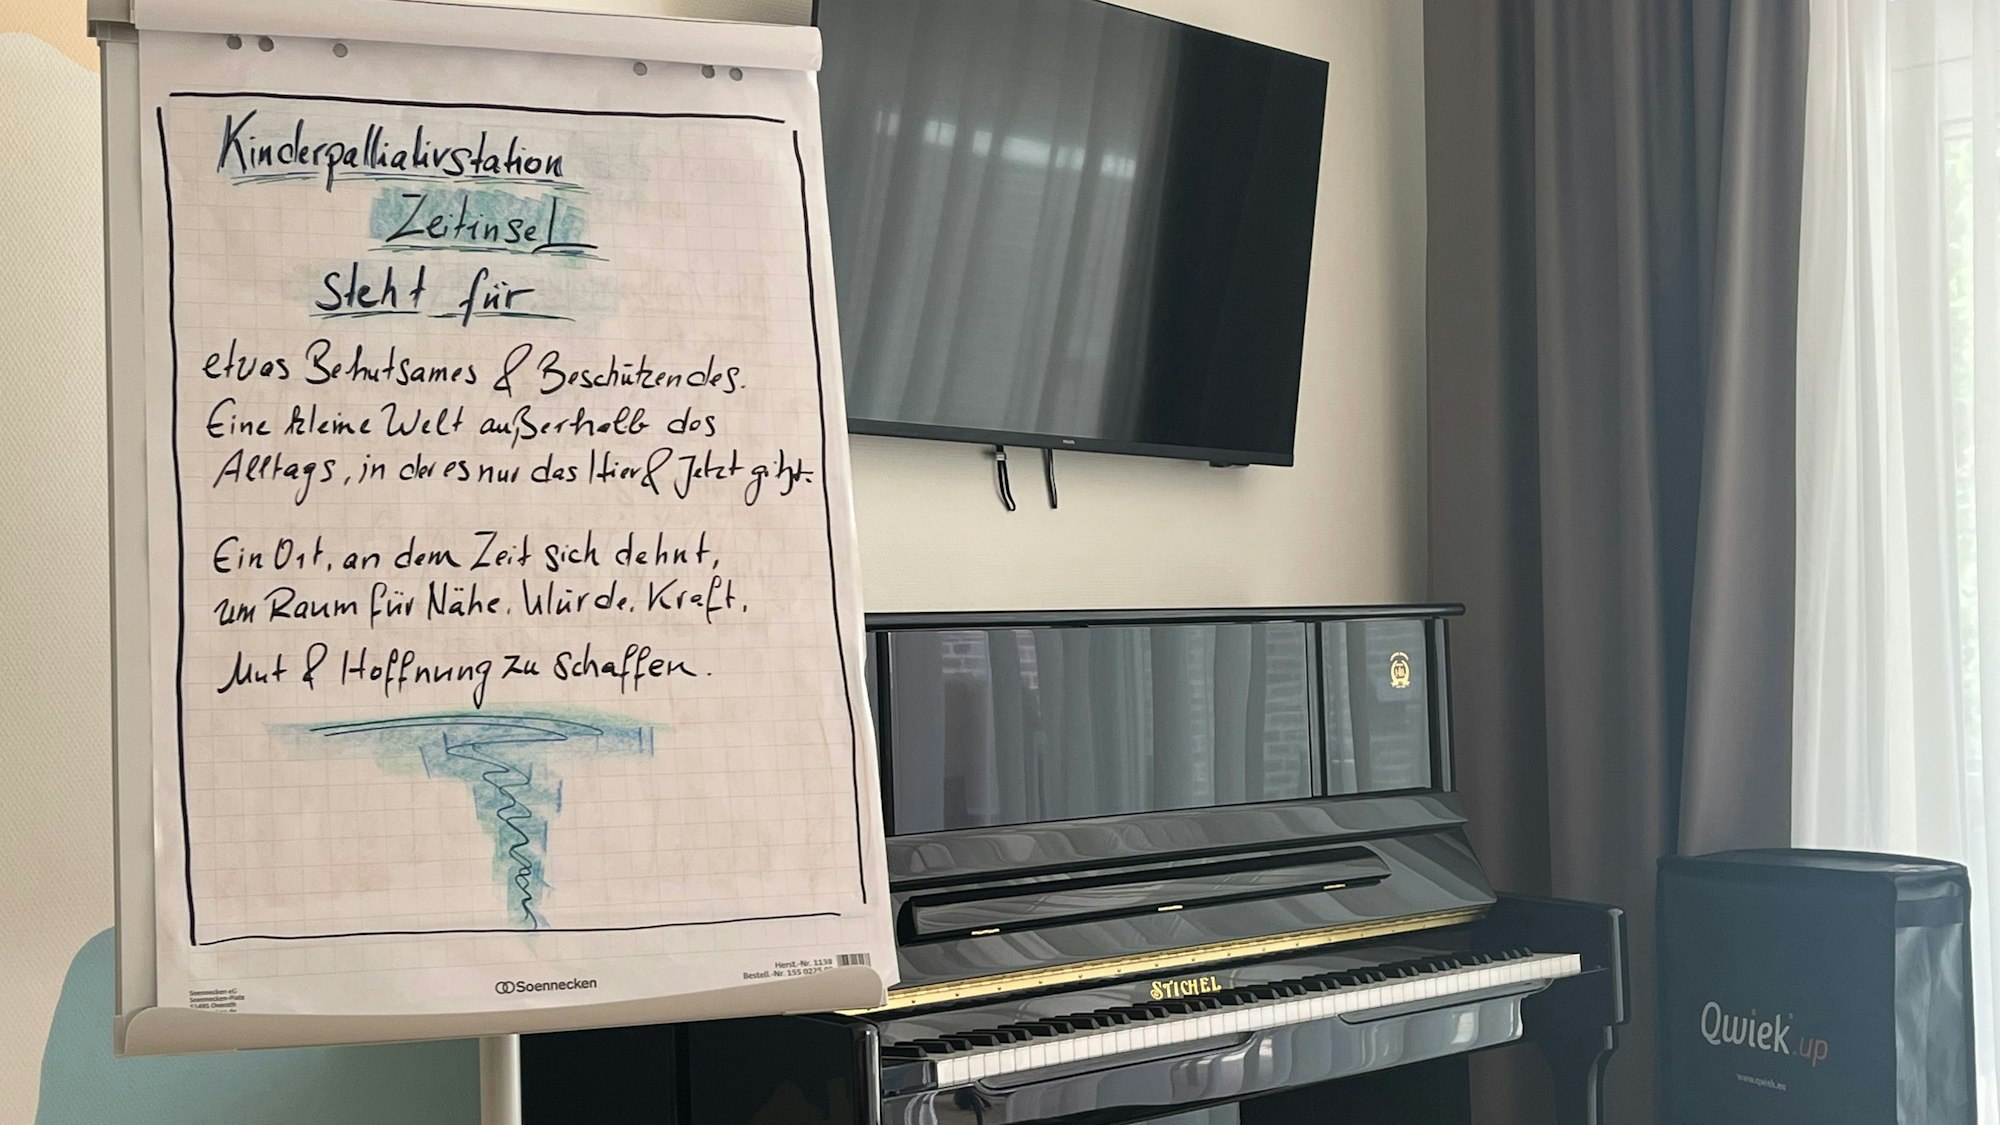 Kinderpalliativstation
Zeitinsel
steht für
etwas Behutsames & Beschützendes.
Eine kleine Welt außerhalb des
Alltags, in der es nur das Hier & Jetzt gibt.
Ein Ort, an dem Zeit sich dehnt,
um Raum für Nähe, Würde, Kraft,
Mut & Hoffnung zu schaffen.
Soennecken
Herst.-Nr. 1138
Bestell.-Nr. 155 0225
Soennecken eG
Soennecken-Platz
51491 Overath
PHILIPS
STICHEL
Qwiek.up
www.qwiek.eu